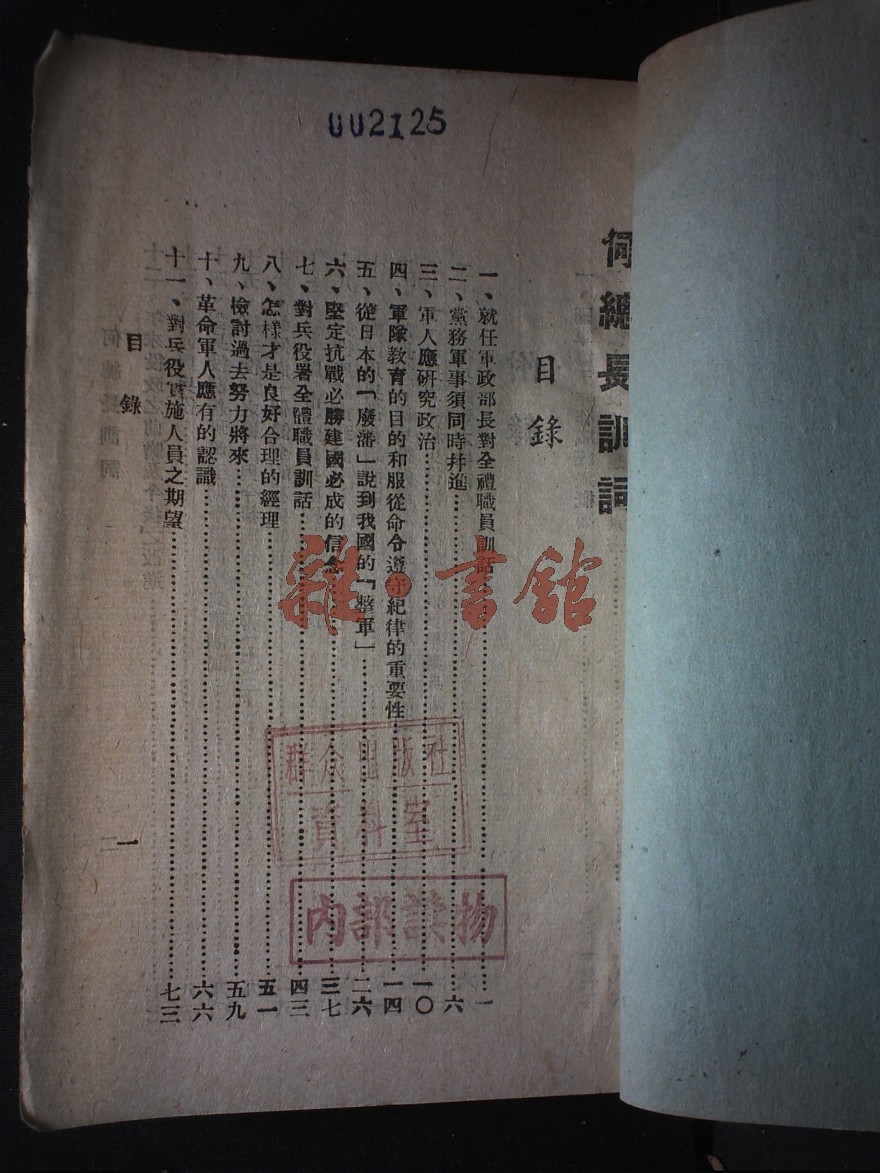 002125
何總長訓詞
目錄
一、就任軍政部長對全體職員訓話……一
二、黨務軍事須同時并進……六
三、軍人應研究政治……一〇
四、軍隊教育的目的和服從命令遵守紀律的重要性……一四
五、從日本的「廢藩」說到我國的「整軍」……二六
六、堅定抗戰必勝建國必成的信念……三七
七、對兵役署全體職員訓話……四三
八、怎樣才是良好合理的經理……五一
九、檢討過去努力將來……五九
十、革命軍人應有的認識……六六
十一、對兵役實施人員之期望……七三
目錄
一
雜·書館
群众出版社
資料室
内部读物